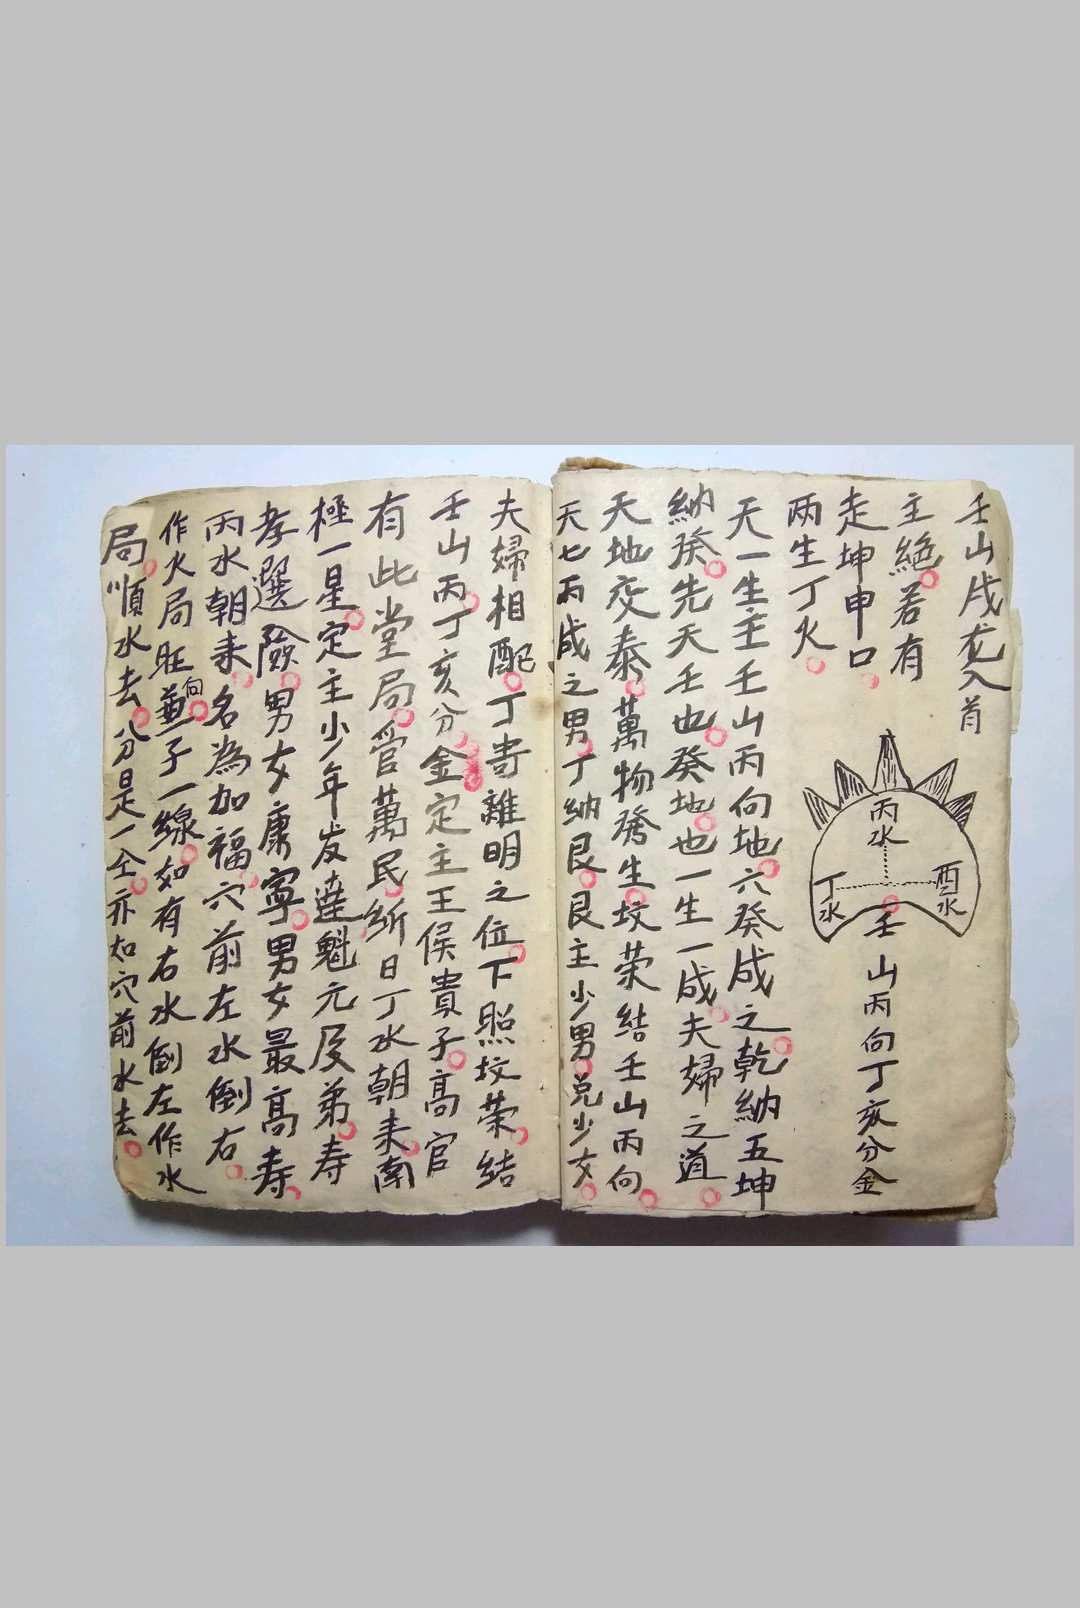 壬山戌龙入首
主絕若有
走坤申口
两生丁火
丙水
丁水
酉水
壬山丙向丁亥分金
天一生壬壬山丙向地六癸成之乾納五坤
納癸先天壬也癸地也一生一成夫婦之道
天地交泰萬物發生坟荣結壬山丙向
天七丙成之男丁納艮艮主少男兑少女
夫婦相配丁寄離明之位下照坟荣結
壬山丙丁亥分金定主王侯貴子高官
有此堂局管萬民所日丁水朝来南
極一星定主少年发達魁元及弟寿
孝選險男女康寧男女最高寿
丙水朝来名為加福穴前左水倒右
作火局旺向兼子一線如有右水倒左作水
局順水去分是一仝亦如穴前水去